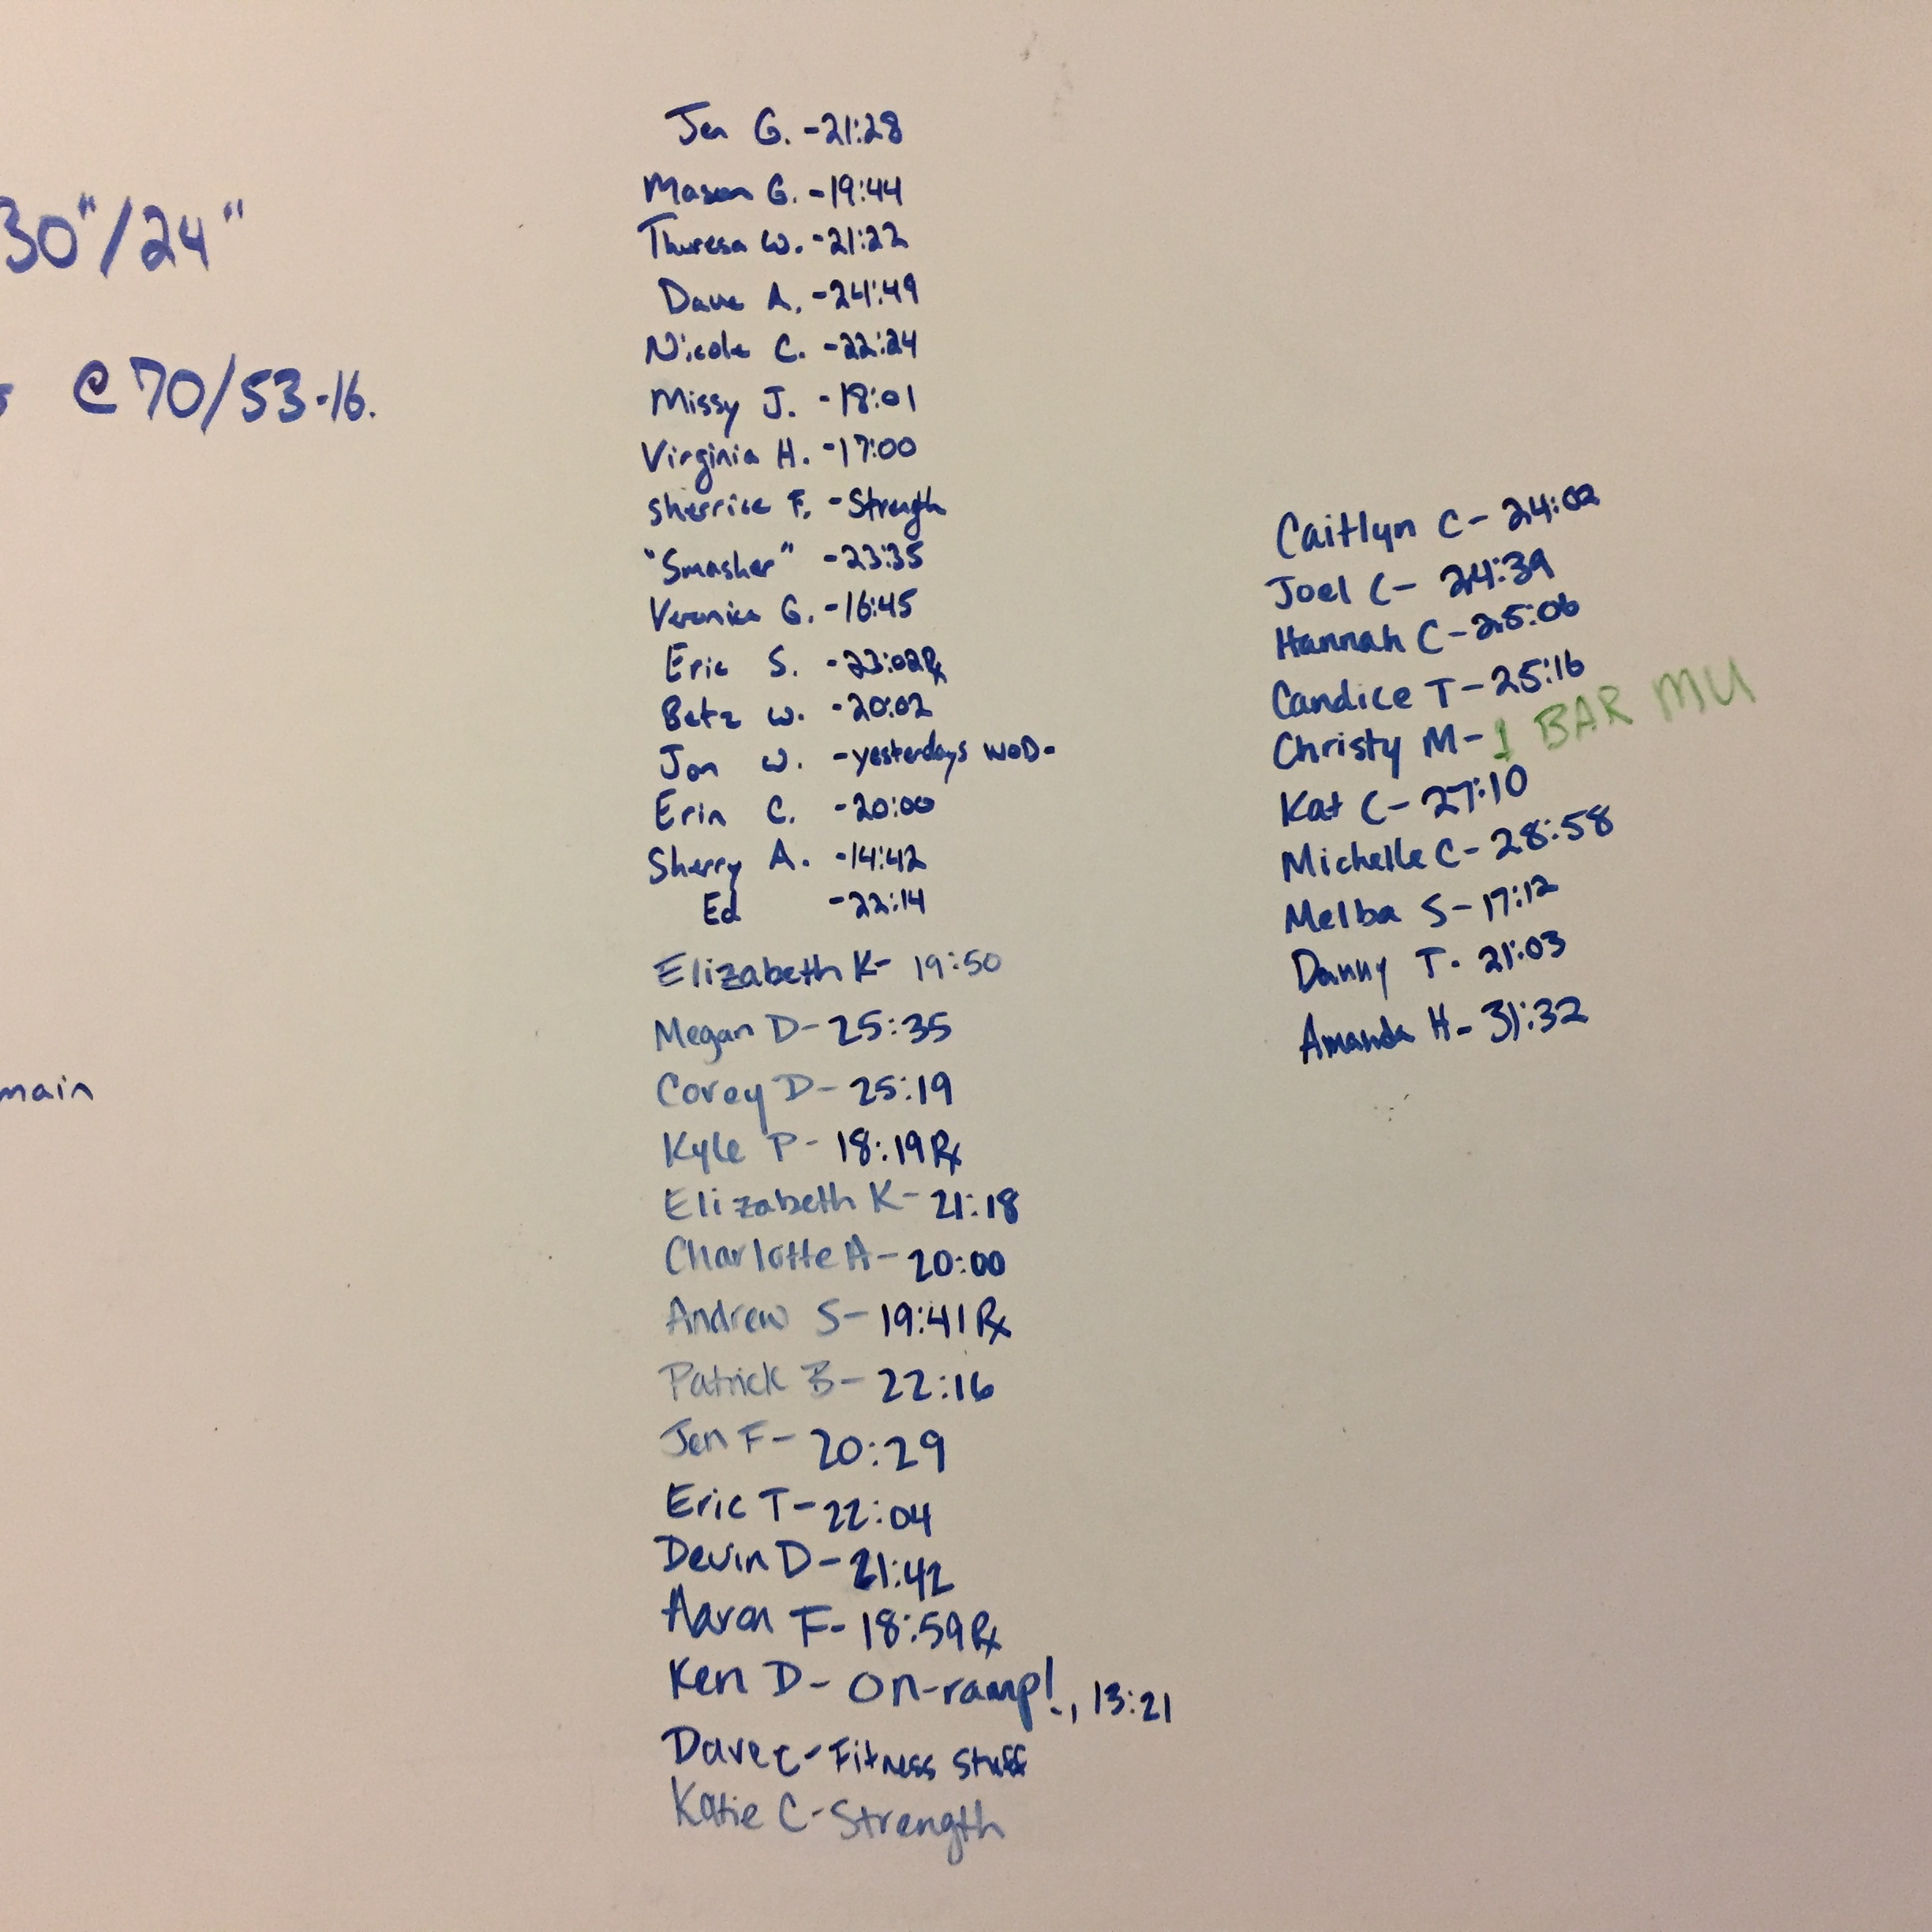 30"/24"
@ 70/53-lb.
main
Jen G. -21:28
Mason G. -19:44
Thuresa W. -21:22
Dave A. -24:49
Nicole C. -22:24
Missy J. -18:01
Virginia H. -17:00
Sherrice F. -Strength
"Smasher" -23:35
Veronica G. -16:45
Eric S. -23:02 Rx
Betz W. -20:02
Jon W. -yesterdays WOD-
Erin C. -20:00
Sherry A. -14:42
Ed -22:14
Elizabeth K- 19:50
Megan D- 25:35
Corey D- 25:19
Kyle P- 18:19 Rx
Elizabeth K- 21:18
Charlotte A- 20:00
Andrew S- 19:41 Rx
Patrick B- 22:16
Jen F- 20:29
Eric T- 22:04
Devin D- 21:42
Aaron F- 18:59 Rx
Ken D- On-ramp!, 13:21
Dave C- Fitness Stuff
Katie C- Strength
Caitlyn C- 24:02
Joel C- 24:39
Hannah C- 25:06
Candice T- 25:16
Christy M- 1 BAR MU
Kat C- 27:10
Michelle C- 28:58
Melba S- 17:12
Danny T- 21:03
Amanda H- 31:32